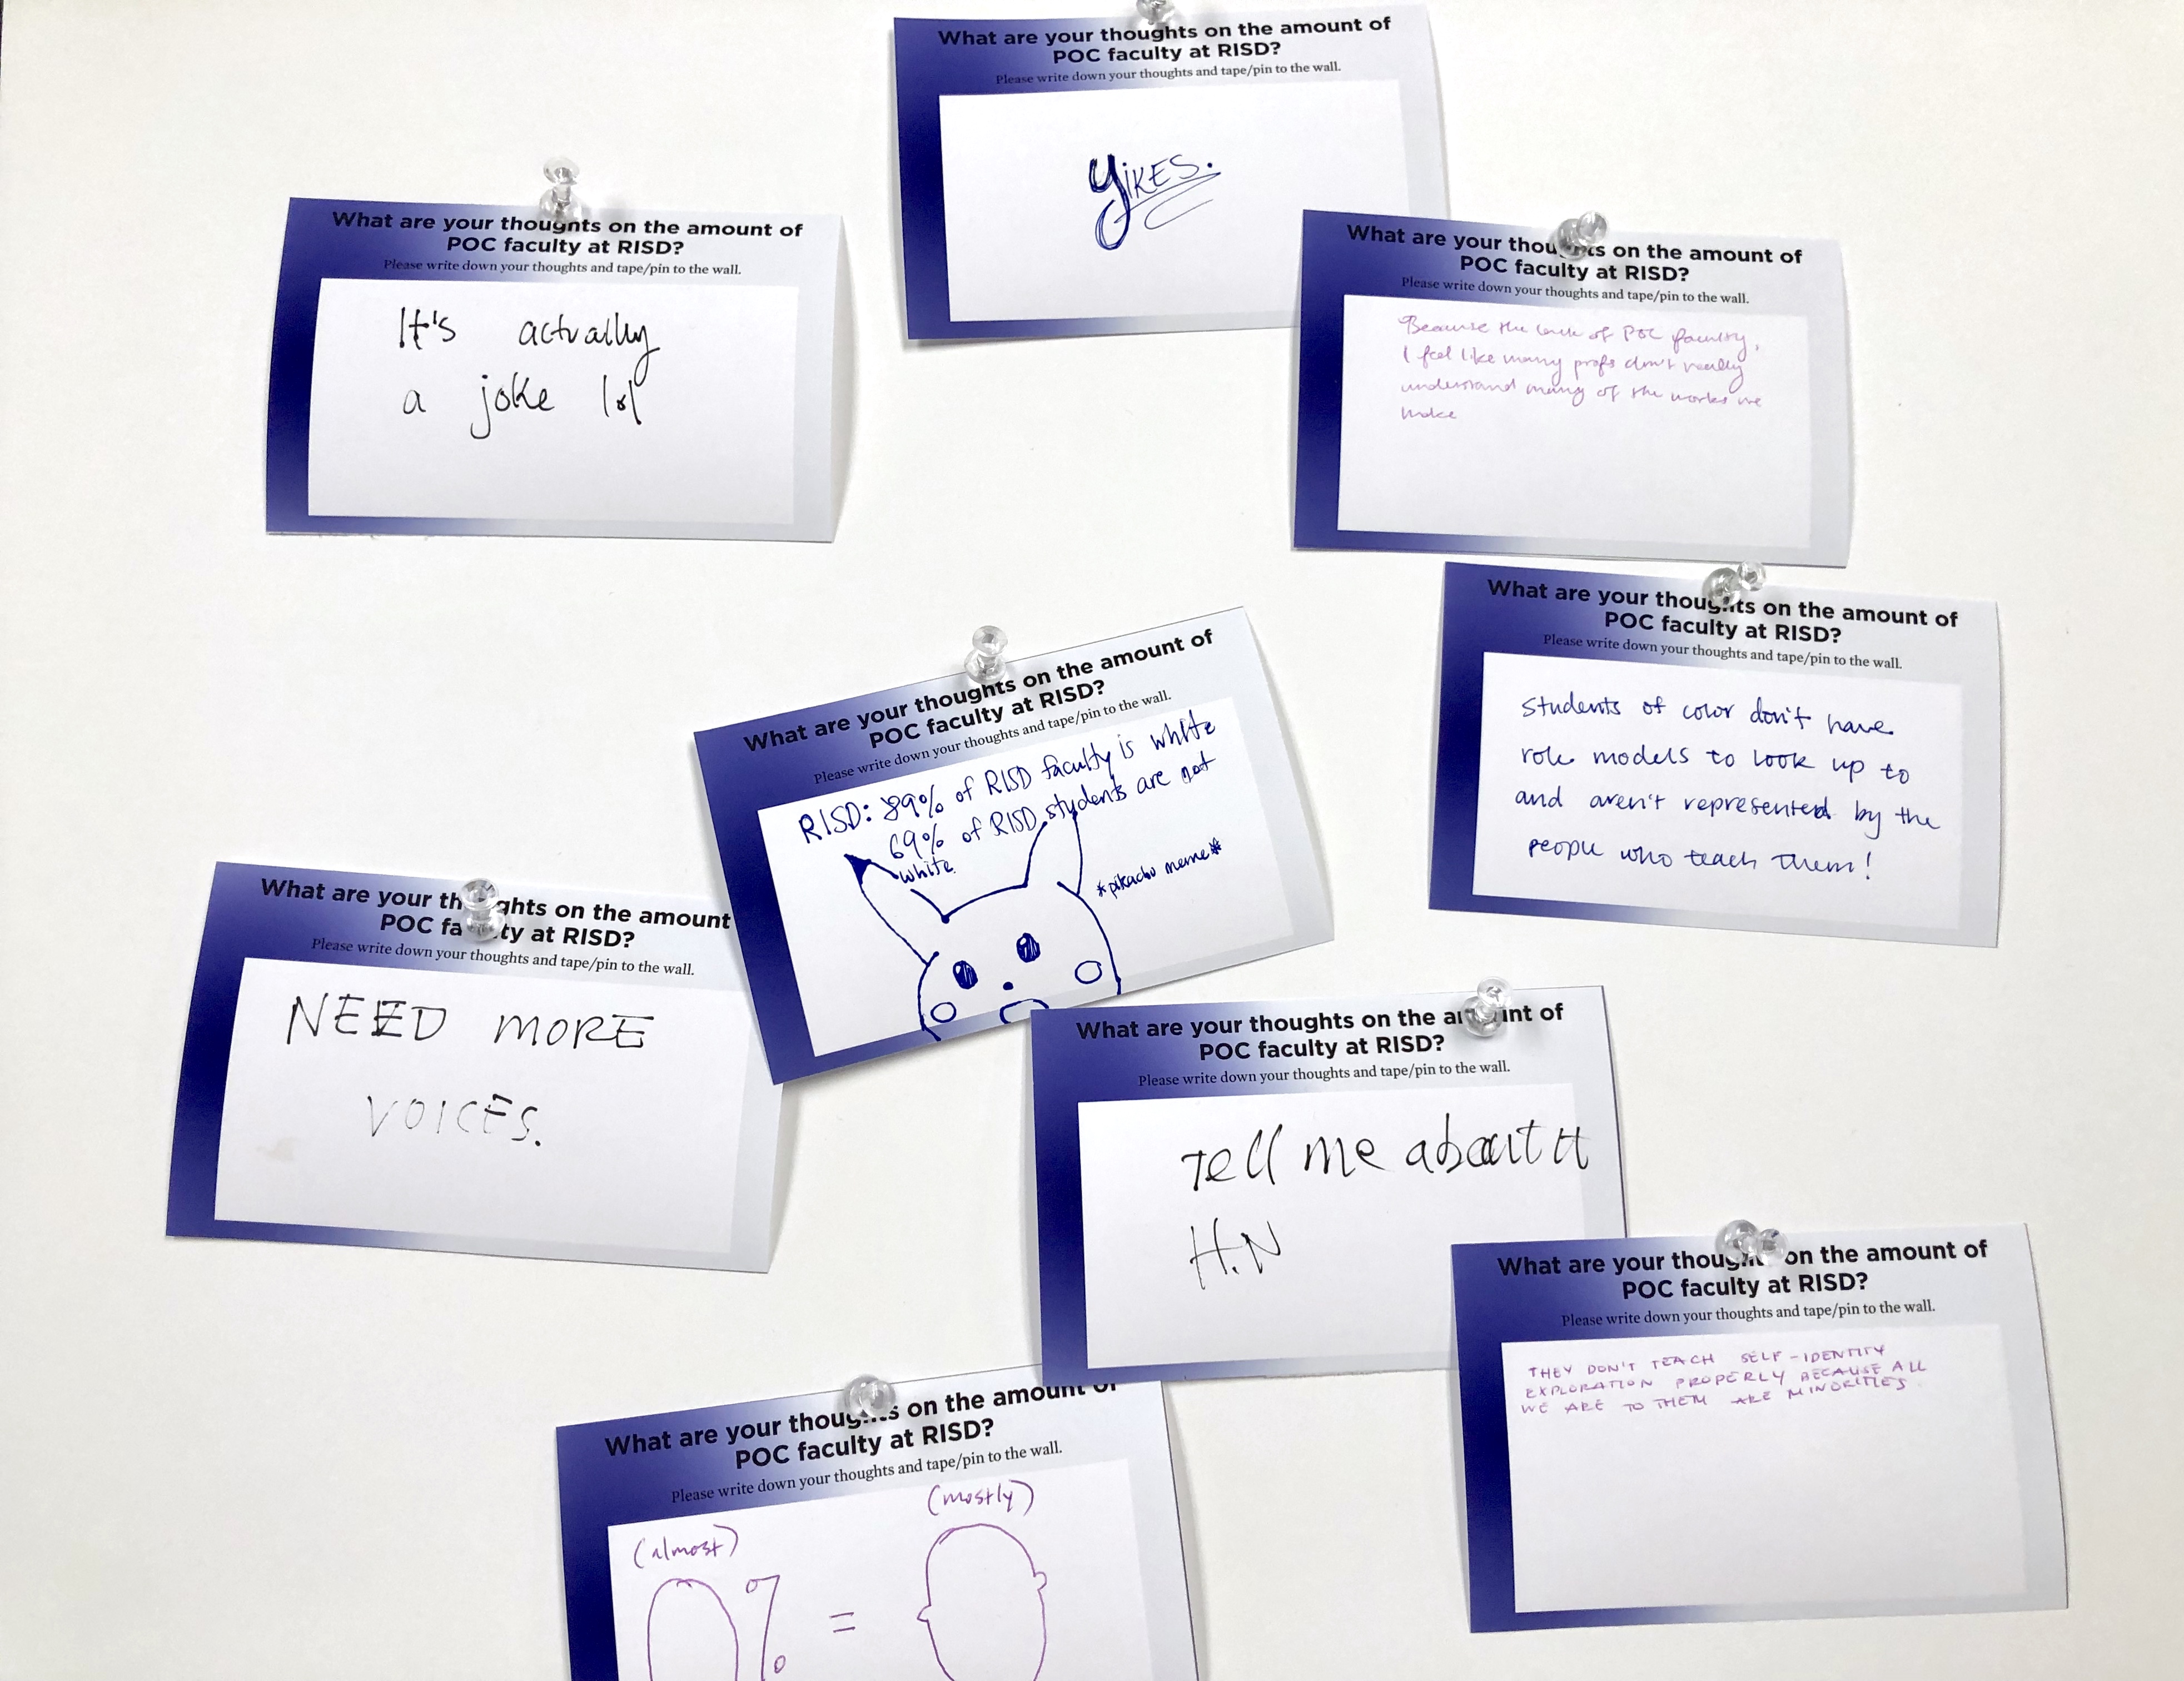 What are your thoughts on the amount of
POC faculty at RISD?
Please write down your thoughts and tape/pin to the wall.
YIKES.
What are your thoughts on the amount of
POC faculty at RISD?
Please write down your thoughts and tape/pin to the wall.
It's actually
a joke lol
What are your thoughts on the amount of
POC faculty at RISD?
Please write down your thoughts and tape/pin to the wall.
Because the lack of POC faculty,
I feel like many profs don't really
understand many of the works we
make
What are your thoughts on the amount of
POC faculty at RISD?
Please write down your thoughts and tape/pin to the wall.
students of color don't have
role models to look up to
and aren't represented by the
people who teach them!
What are your thoughts on the amount of
POC faculty at RISD?
Please write down your thoughts and tape/pin to the wall.
RISD: 89% of RISD faculty is white
69% of RISD students are not
white
*pikachu meme*
What are your thoughts on the amount
POC faculty at RISD?
Please write down your thoughts and tape/pin to the wall.
NEED MORE
VOICES.
What are your thoughts on the amount of
POC faculty at RISD?
Please write down your thoughts and tape/pin to the wall.
Tell me about it
H.N
What are your thoughts on the amount of
POC faculty at RISD?
Please write down your thoughts and tape/pin to the wall.
THEY DON'T TEACH SELF-IDENTITY
EXPLORATION PROPERLY BECAUSE ALL
WE ARE TO THEM ARE MINORITIES.
What are your thoughts on the amount of
POC faculty at RISD?
Please write down your thoughts and tape/pin to the wall.
(mostly)
(almost)
0% =